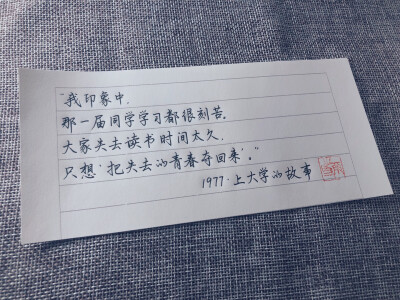 “我印象中，
那一届同学学习都很刻苦。
大家失去读书时间太久，
只想‘把失去的青春夺回来’。”
1977·上大学的故事